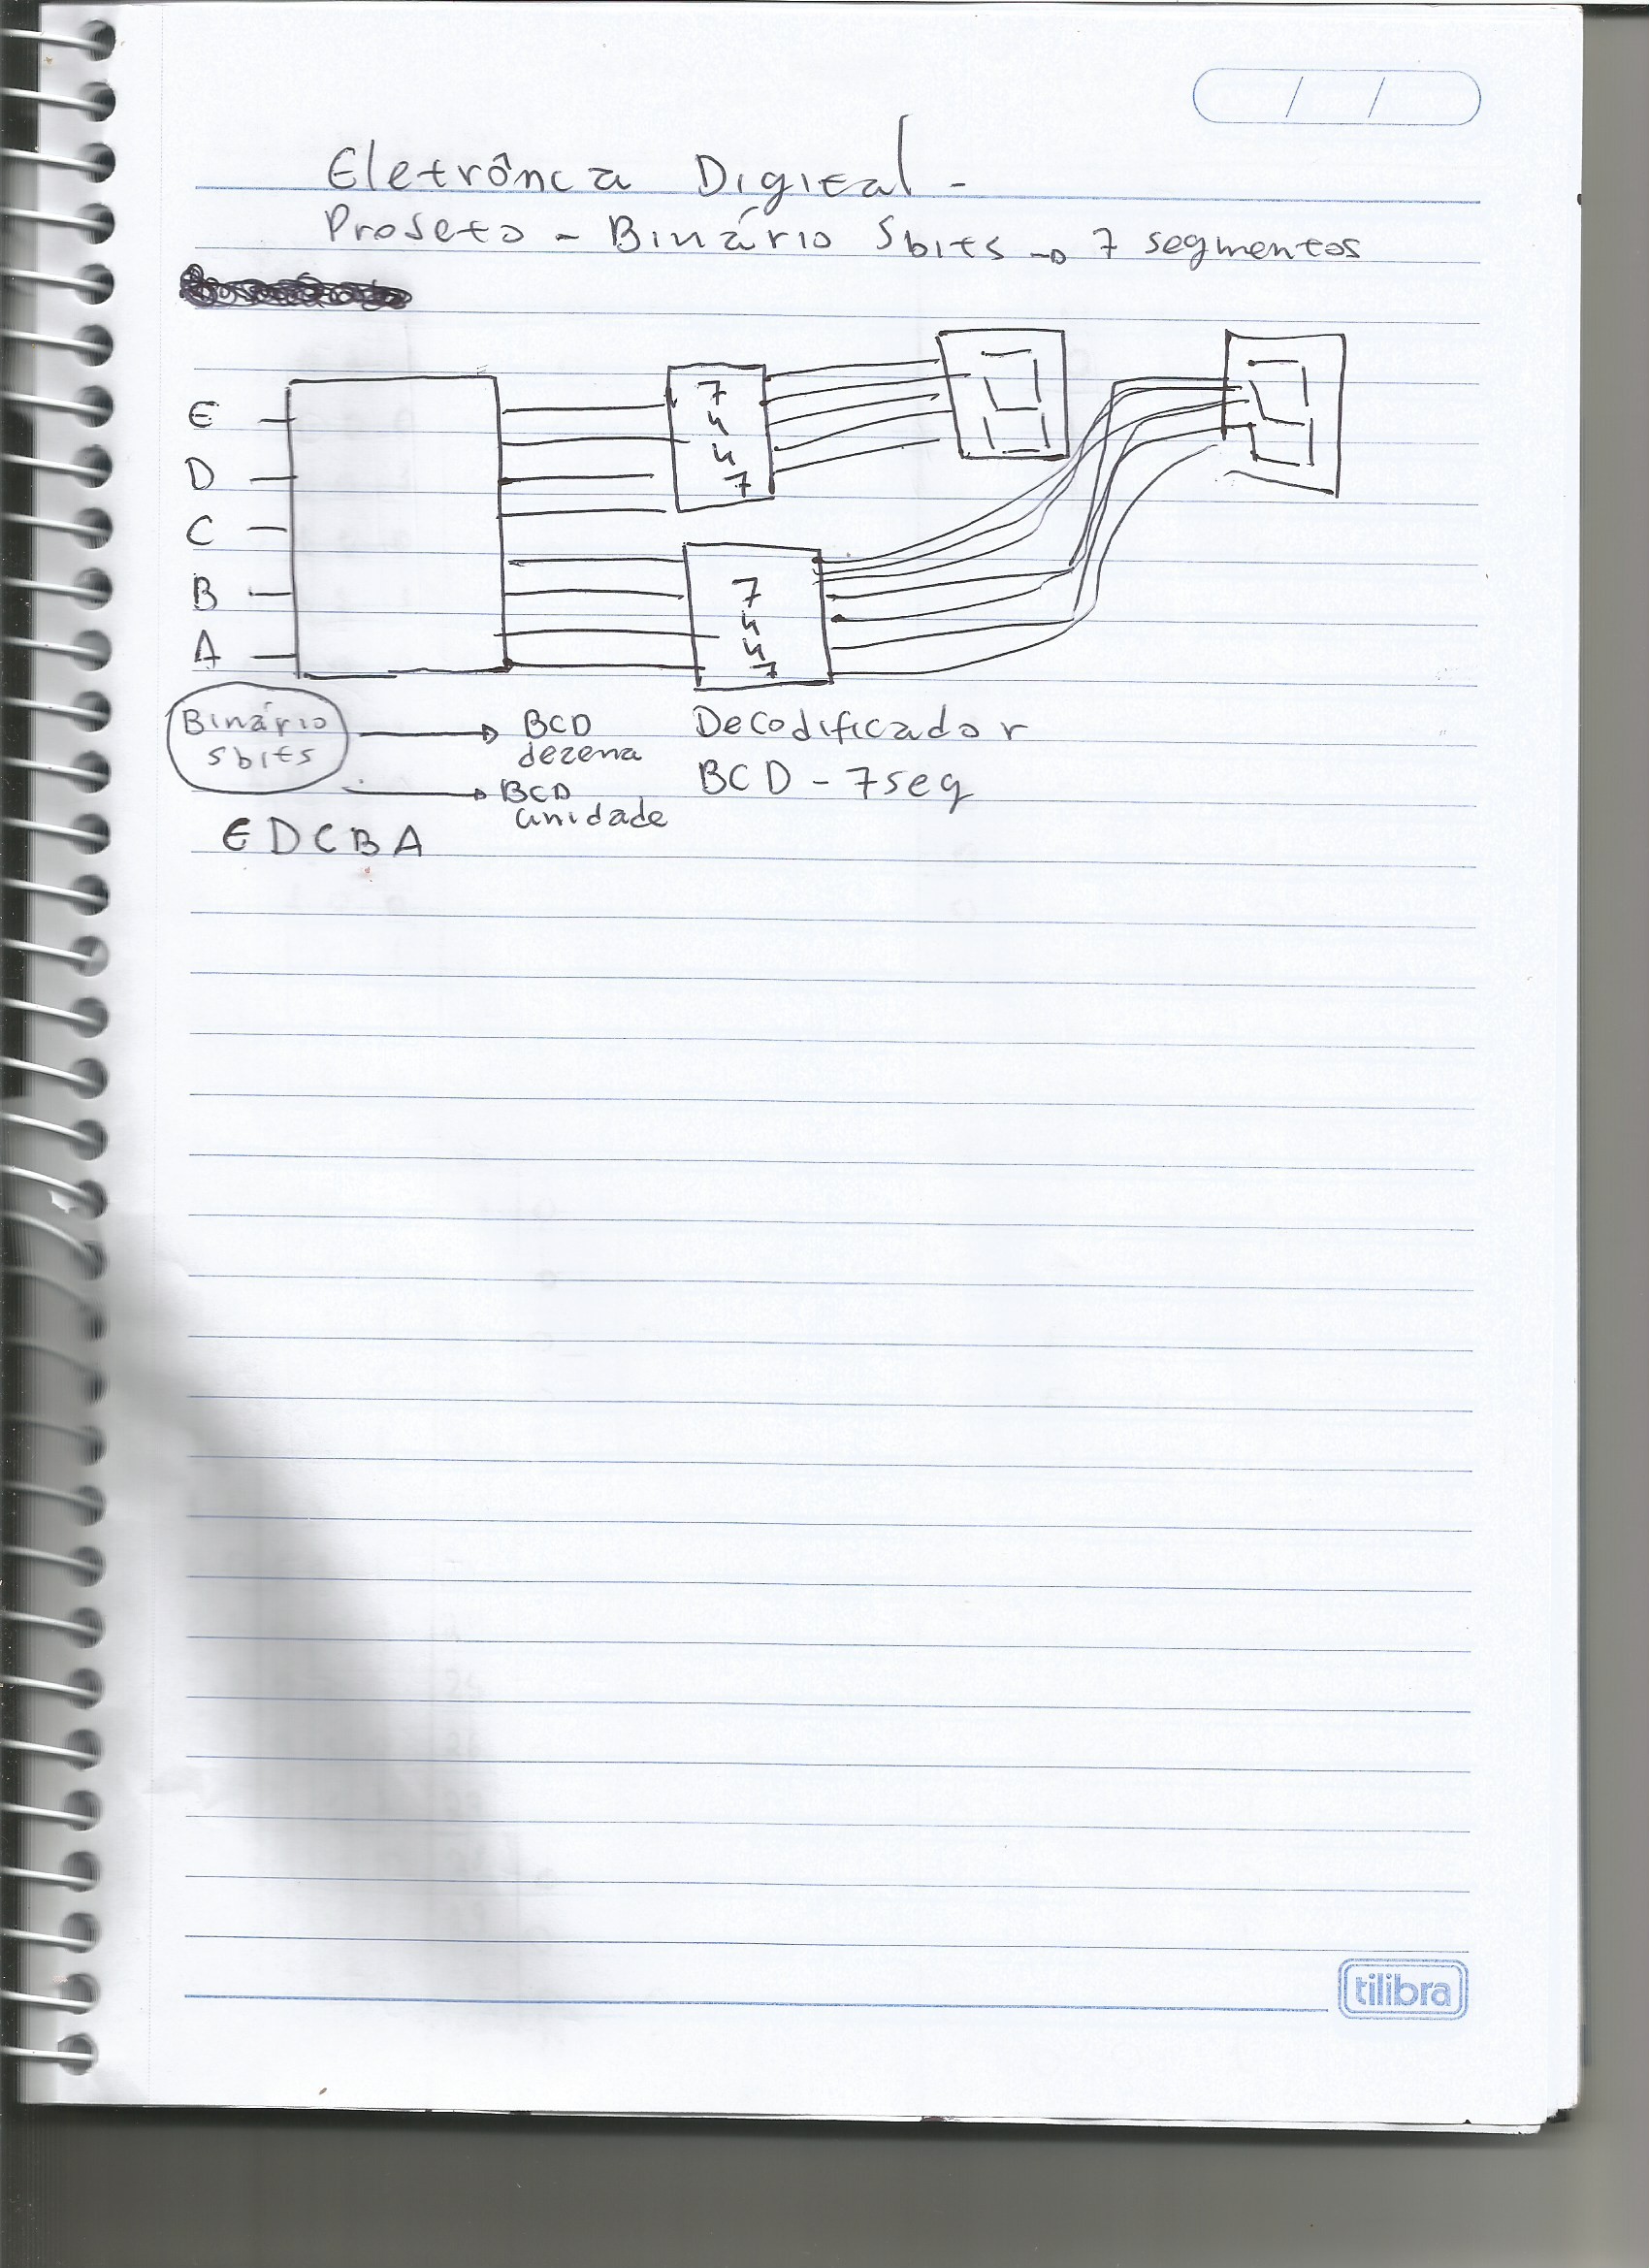 / /
Eletrônca Digital -
Projeto - Binário 5bits → 7 segmentos
E
D
C
B
A
7
4
4
7
7
4
4
7
Binário
5bits
BCD
dezena
BCD
unidade
Decodificador
BCD - 7seg
EDCBA
tilibra